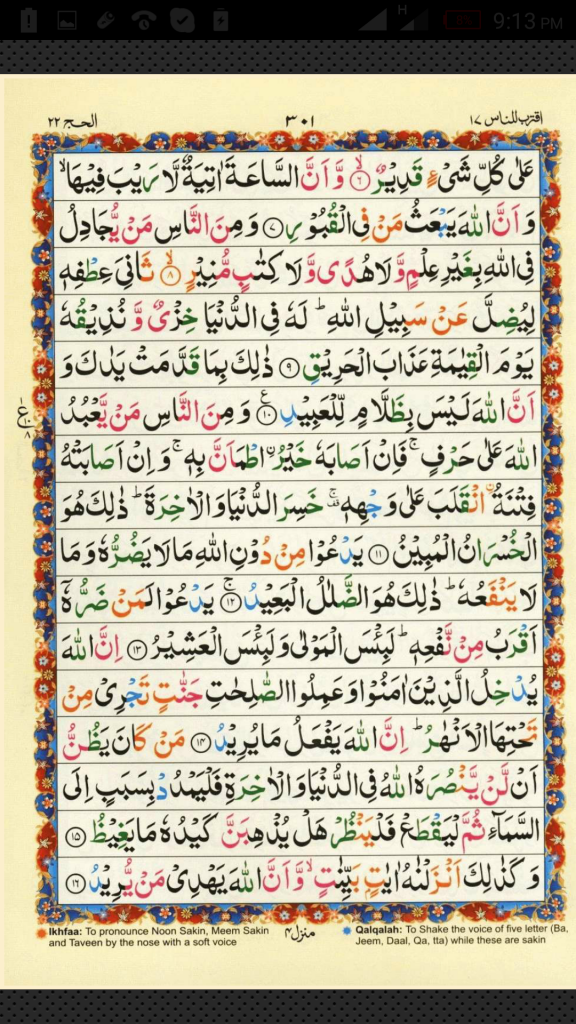 H 9:13 PM
اقترب للناس ١٧ ٣٠١ الحج ٢٢
عَلٰى كُلِّ شَىْءٍ قَدِيْرٌ ۙ﴿۶﴾ وَّ اَنَّ السَّاعَةَ اٰتِيَةٌ لَّا رَيْبَ فِيْهَا ۙ
وَ اَنَّ اللّٰهَ يَبْعَثُ مَنْ فِى الْقُبُوْرِ ﴿۷﴾ وَ مِنَ النَّاسِ مَنْ يُّجَادِلُ
فِى اللّٰهِ بِغَيْرِ عِلْمٍ وَّلَا هُدًى وَّلَا كِتٰبٍ مُّنِيْرٍ ۙ﴿۸﴾ ثَانِىَ عِطْفِهٖ
لِيُضِلَّ عَنْ سَبِيْلِ اللّٰهِ ؕ لَهٗ فِى الدُّنْيَا خِزْىٌ وَّ نُذِيْقُهٗ
يَوْمَ الْقِيٰمَةِ عَذَابَ الْحَرِيْقِ ﴿۹﴾ ذٰلِكَ بِمَا قَدَّمَتْ يَدٰكَ وَ
اَنَّ اللّٰهَ لَيْسَ بِظَلَّامٍ لِّلْعَبِيْدِ ﴿۱۰﴾ع وَ مِنَ النَّاسِ مَنْ يَّعْبُدُ
ع ١٠ ٨
اللّٰهَ عَلٰى حَرْفٍ ۚ فَاِنْ اَصَابَهٗ خَيْرُ ۨ اطْمَاَنَّ بِهٖ ۚ وَ اِنْ اَصَابَتْهُ
فِتْنَةُ ۨ انْقَلَبَ عَلٰى وَجْهِهٖ ۚقف خَسِرَ الدُّنْيَا وَ الْاٰخِرَةَ ؕ ذٰلِكَ هُوَ
الْخُسْرَانُ الْمُبِيْنُ ﴿۱۱﴾ يَدْعُوْا مِنْ دُوْنِ اللّٰهِ مَا لَا يَضُرُّهٗ وَ مَا
لَا يَنْفَعُهٗ ؕ ذٰلِكَ هُوَ الضَّلٰلُ الْبَعِيْدُ ۚ﴿۱۲﴾ يَدْعُوْا لَمَنْ ضَرُّهٗۤ
اَقْرَبُ مِنْ نَّفْعِهٖ ؕ لَبِئْسَ الْمَوْلٰى وَ لَبِئْسَ الْعَشِيْرُ ﴿۱۳﴾ اِنَّ اللّٰهَ
يُدْخِلُ الَّذِيْنَ اٰمَنُوْا وَ عَمِلُوا الصّٰلِحٰتِ جَنّٰتٍ تَجْرِىْ مِنْ
تَحْتِهَا الْاَنْهٰرُ ؕ اِنَّ اللّٰهَ يَفْعَلُ مَا يُرِيْدُ ﴿۱۴﴾ مَنْ كَانَ يَظُنُّ
اَنْ لَّنْ يَّنْصُرَهُ اللّٰهُ فِى الدُّنْيَا وَ الْاٰخِرَةِ فَلْيَمْدُدْ بِسَبَبٍ اِلَى
السَّمَآءِ ثُمَّ لْيَقْطَعْ فَلْيَنْظُرْ هَلْ يُذْهِبَنَّ كَيْدُهٗ مَا يَغِيْظُ ﴿۱۵﴾
وَ كَذٰلِكَ اَنْزَلْنٰهُ اٰيٰتٍۭ بَيِّنٰتٍ ۙ وَّ اَنَّ اللّٰهَ يَهْدِىْ مَنْ يُّرِيْدُ ﴿۱۶﴾
Ikhfaa: To pronounce Noon Sakin, Meem Sakin
and Taveen by the nose with a soft voice
منزل ۴
Qalqalah: To Shake the voice of five letter (Ba,
Jeem, Daal, Qa, tta) while these are sakin